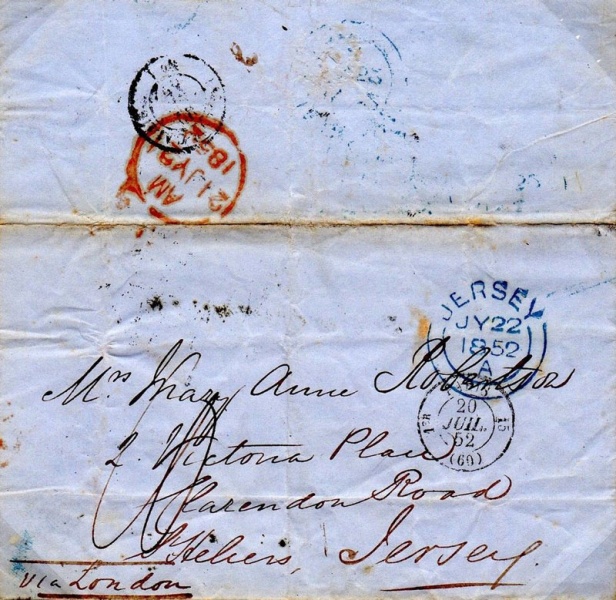 AM
21 JY 21
185
JERSEY
JY 22
1852
A
Mrs Mary Anne Robertson
20
JUIL.
52
(60)
2. Victoria Place
Clarendon Road
St Heliers, Jersey.
via London